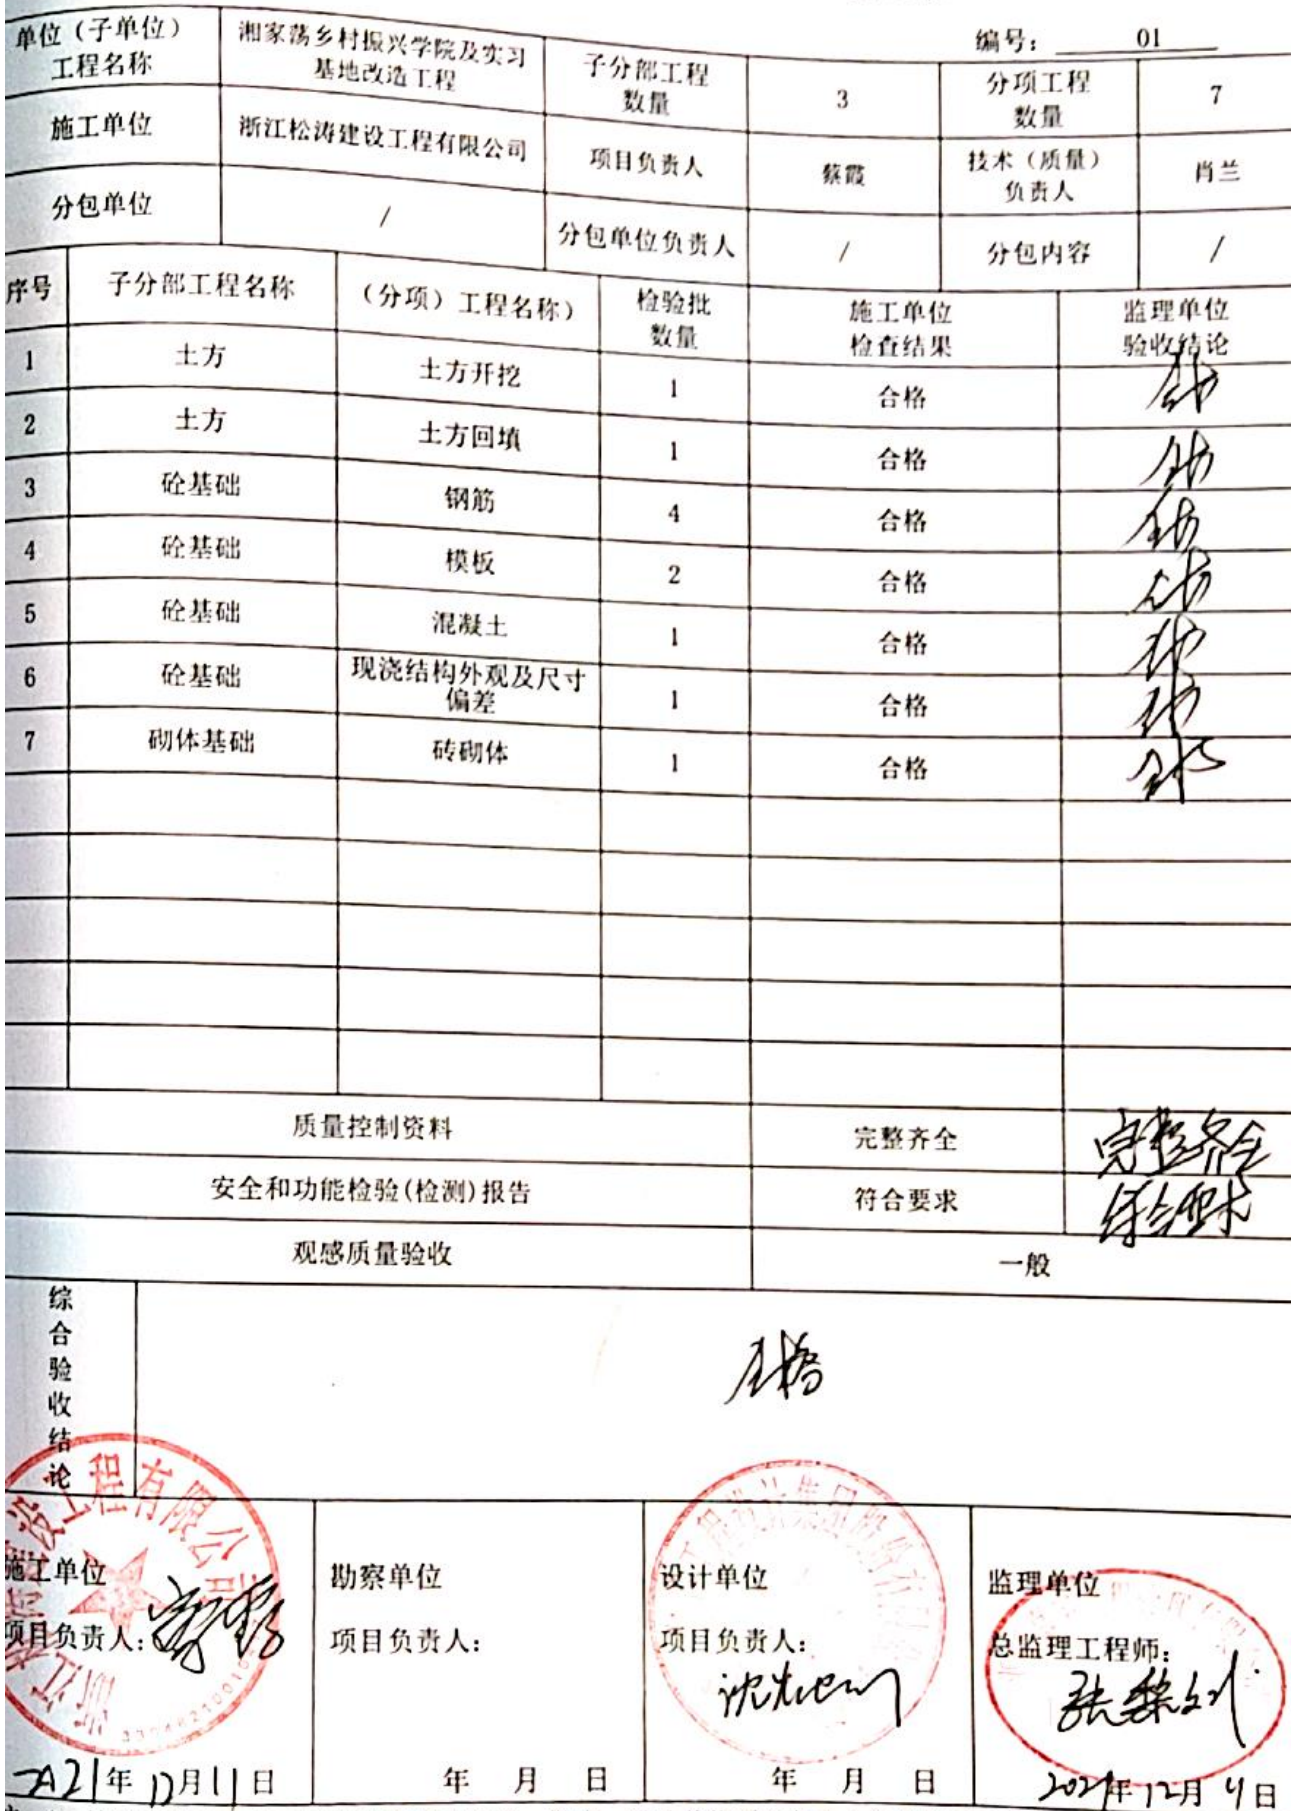 编号： 01
单位（子单位）
工程名称
湘家荡乡村振兴学院及实习
基地改造工程
子分部工程
数量
3
分项工程
数量
7
施工单位
浙江松涛建设工程有限公司
项目负责人
蔡霞
技术（质量）
负责人
肖兰
分包单位
/
分包单位负责人
/
分包内容
/
序号 子分部工程名称 （分项）工程名称） 检验批
数量
施工单位
检查结果
监理单位
验收结论
1 土方 土方开挖 1 合格 合格
2 土方 土方回填 1 合格 合格
3 砼基础 钢筋 4 合格 合格
4 砼基础 模板 2 合格 合格
5 砼基础 混凝土 1 合格 合格
6 砼基础 现浇结构外观及尺寸
偏差
1 合格 合格
7 砌体基础 砖砌体 1 合格 合格
质量控制资料 完整齐全 完整齐全
安全和功能检验(检测)报告 符合要求 符合要求
观感质量验收 一般
综合验收结论
合格
施工单位
项目负责人：
勘察单位
项目负责人：
年 月 日
设计单位
项目负责人：
年 月 日
监理单位
总监理工程师：
2021年12月11日
工程有限公司